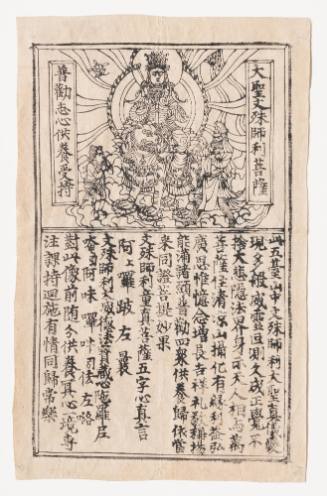 大聖文殊師利菩薩
普勸志心供養受持
此五臺山中文殊師利大聖真儀變
現多種威靈叵測久成正覺不
捨大悲隱法界身示天人相与萬
菩薩住清涼山攝化有緣利益弘
廣思惟憶念增長吉祥礼敬稱揚
能滿諸願普勸四衆供養歸依當
來同證菩提妙果
文殊師利童真菩薩五字心真言
阿上囉跛左曩
文殊師利大威德法寶藏心陀羅尼
唵引阿味囉吽引佉左咯
對此像前隨分供養冥心一境專
注課持迴施有情同歸常樂